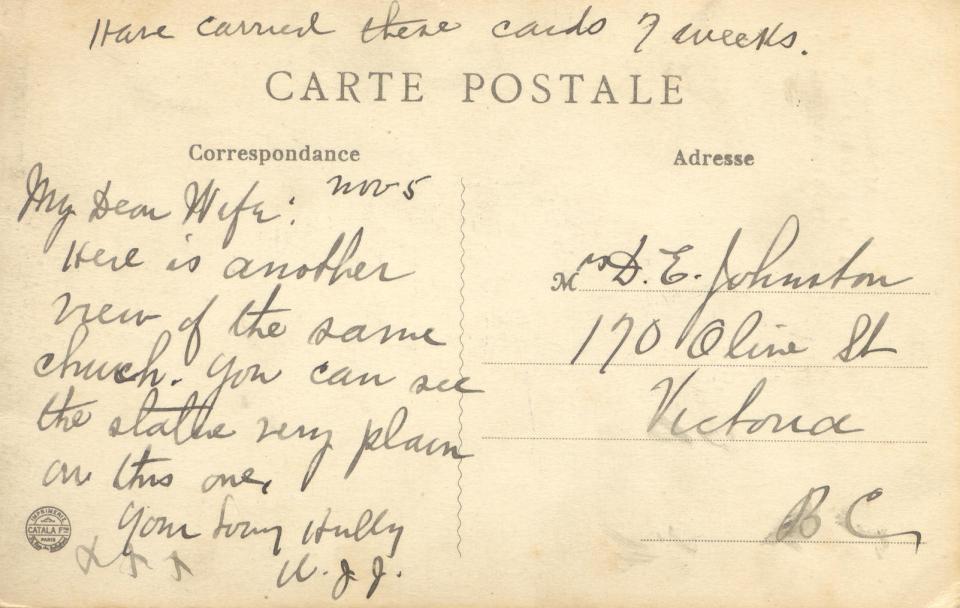 Have carried these cards 7 weeks.
CARTE POSTALE
Correspondance
Adresse
Nov 5
My Dear Wife:
Here is another
view of the same
church. You can see
the statue very plain
on this one.
Your Loving Hubby
W. J. J.
x x x
Mrs D. E. Johnston
170 Olive St
Victoria
B C
IMPRIMERIE
CATALA Fres
PARIS